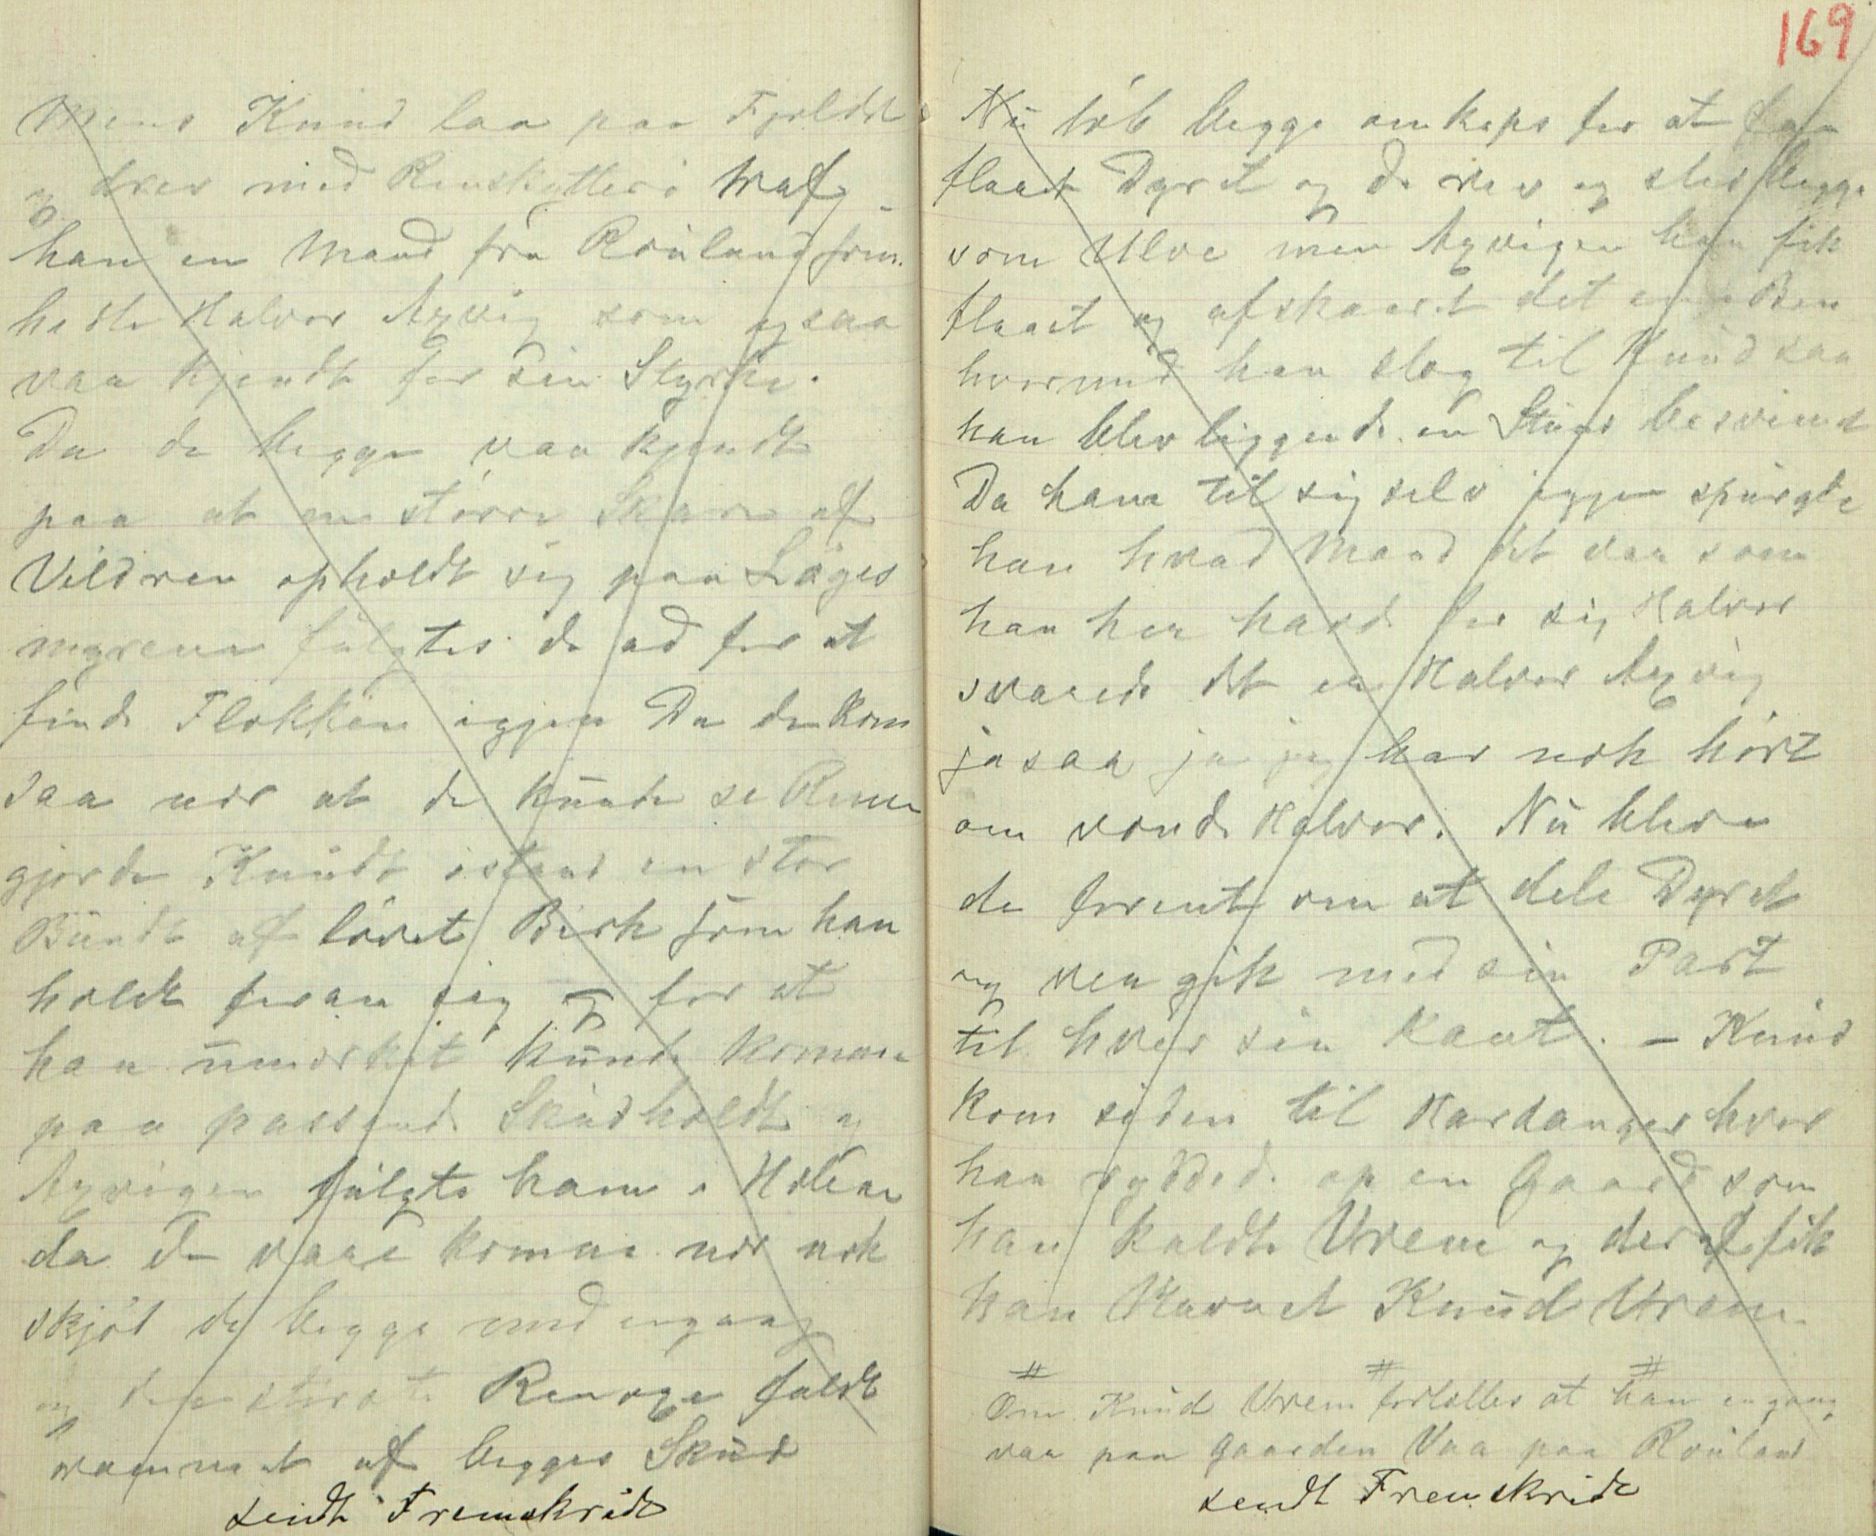 Mens Knud laa paa Fjeldet
og drev med Renskytteri traf
han en Mand fra Rauland som
hedte Halvor Axvig som ogsaa
var kjendt for sin Styrke.
Da de begge var kjendt
paa at en større Skare af
Vildren opholdt sig paa Læges
myrene fulgtes de ad for at
finde Flokken igjen Da de kom
saa nær at de kunde se Renen
gjorde Knud istand en stor
Bundt af løvet Birk som han
holdt foran sig for at
han umerket kunde komme
paa passende Skudholdt og
Axvigen fulgte ham i Hælene
da de vare komne nær nok
skjøt de begge med engang
og den største Renoxe faldt
rammet af begges Skud
sendt Fremskridt
169
Nu løb begge omkaps for at faa
flaae Dyret og de rev og sled begge
som Ulve men Axvigen han fik
flaaet og afskaaret det ene Ben
hvormed han slog til Knud saa
han blev liggende en Stund besvimet
Da han kom til sig selv igjen spurgte
han hvad Mand det var som
han her havde for sig Halvor
svarede det er Halvor Axvig
jasaa ja jeg har nok hørt
om vonde Halvor. Nu bleve
de forent om at dele Dyret
og gik med sin Part
til hver sin Kant. – Knud
kom siden til Hardanger hvor
han ryddede op en Gaard som
han kaldte Vrem og deraf fik
han Navnet Knud Vrem.
# # #
Om Knud Vrem fortælles at han engang
var paa Gaarden Vaa paa Rauland
sendt Fremskridt